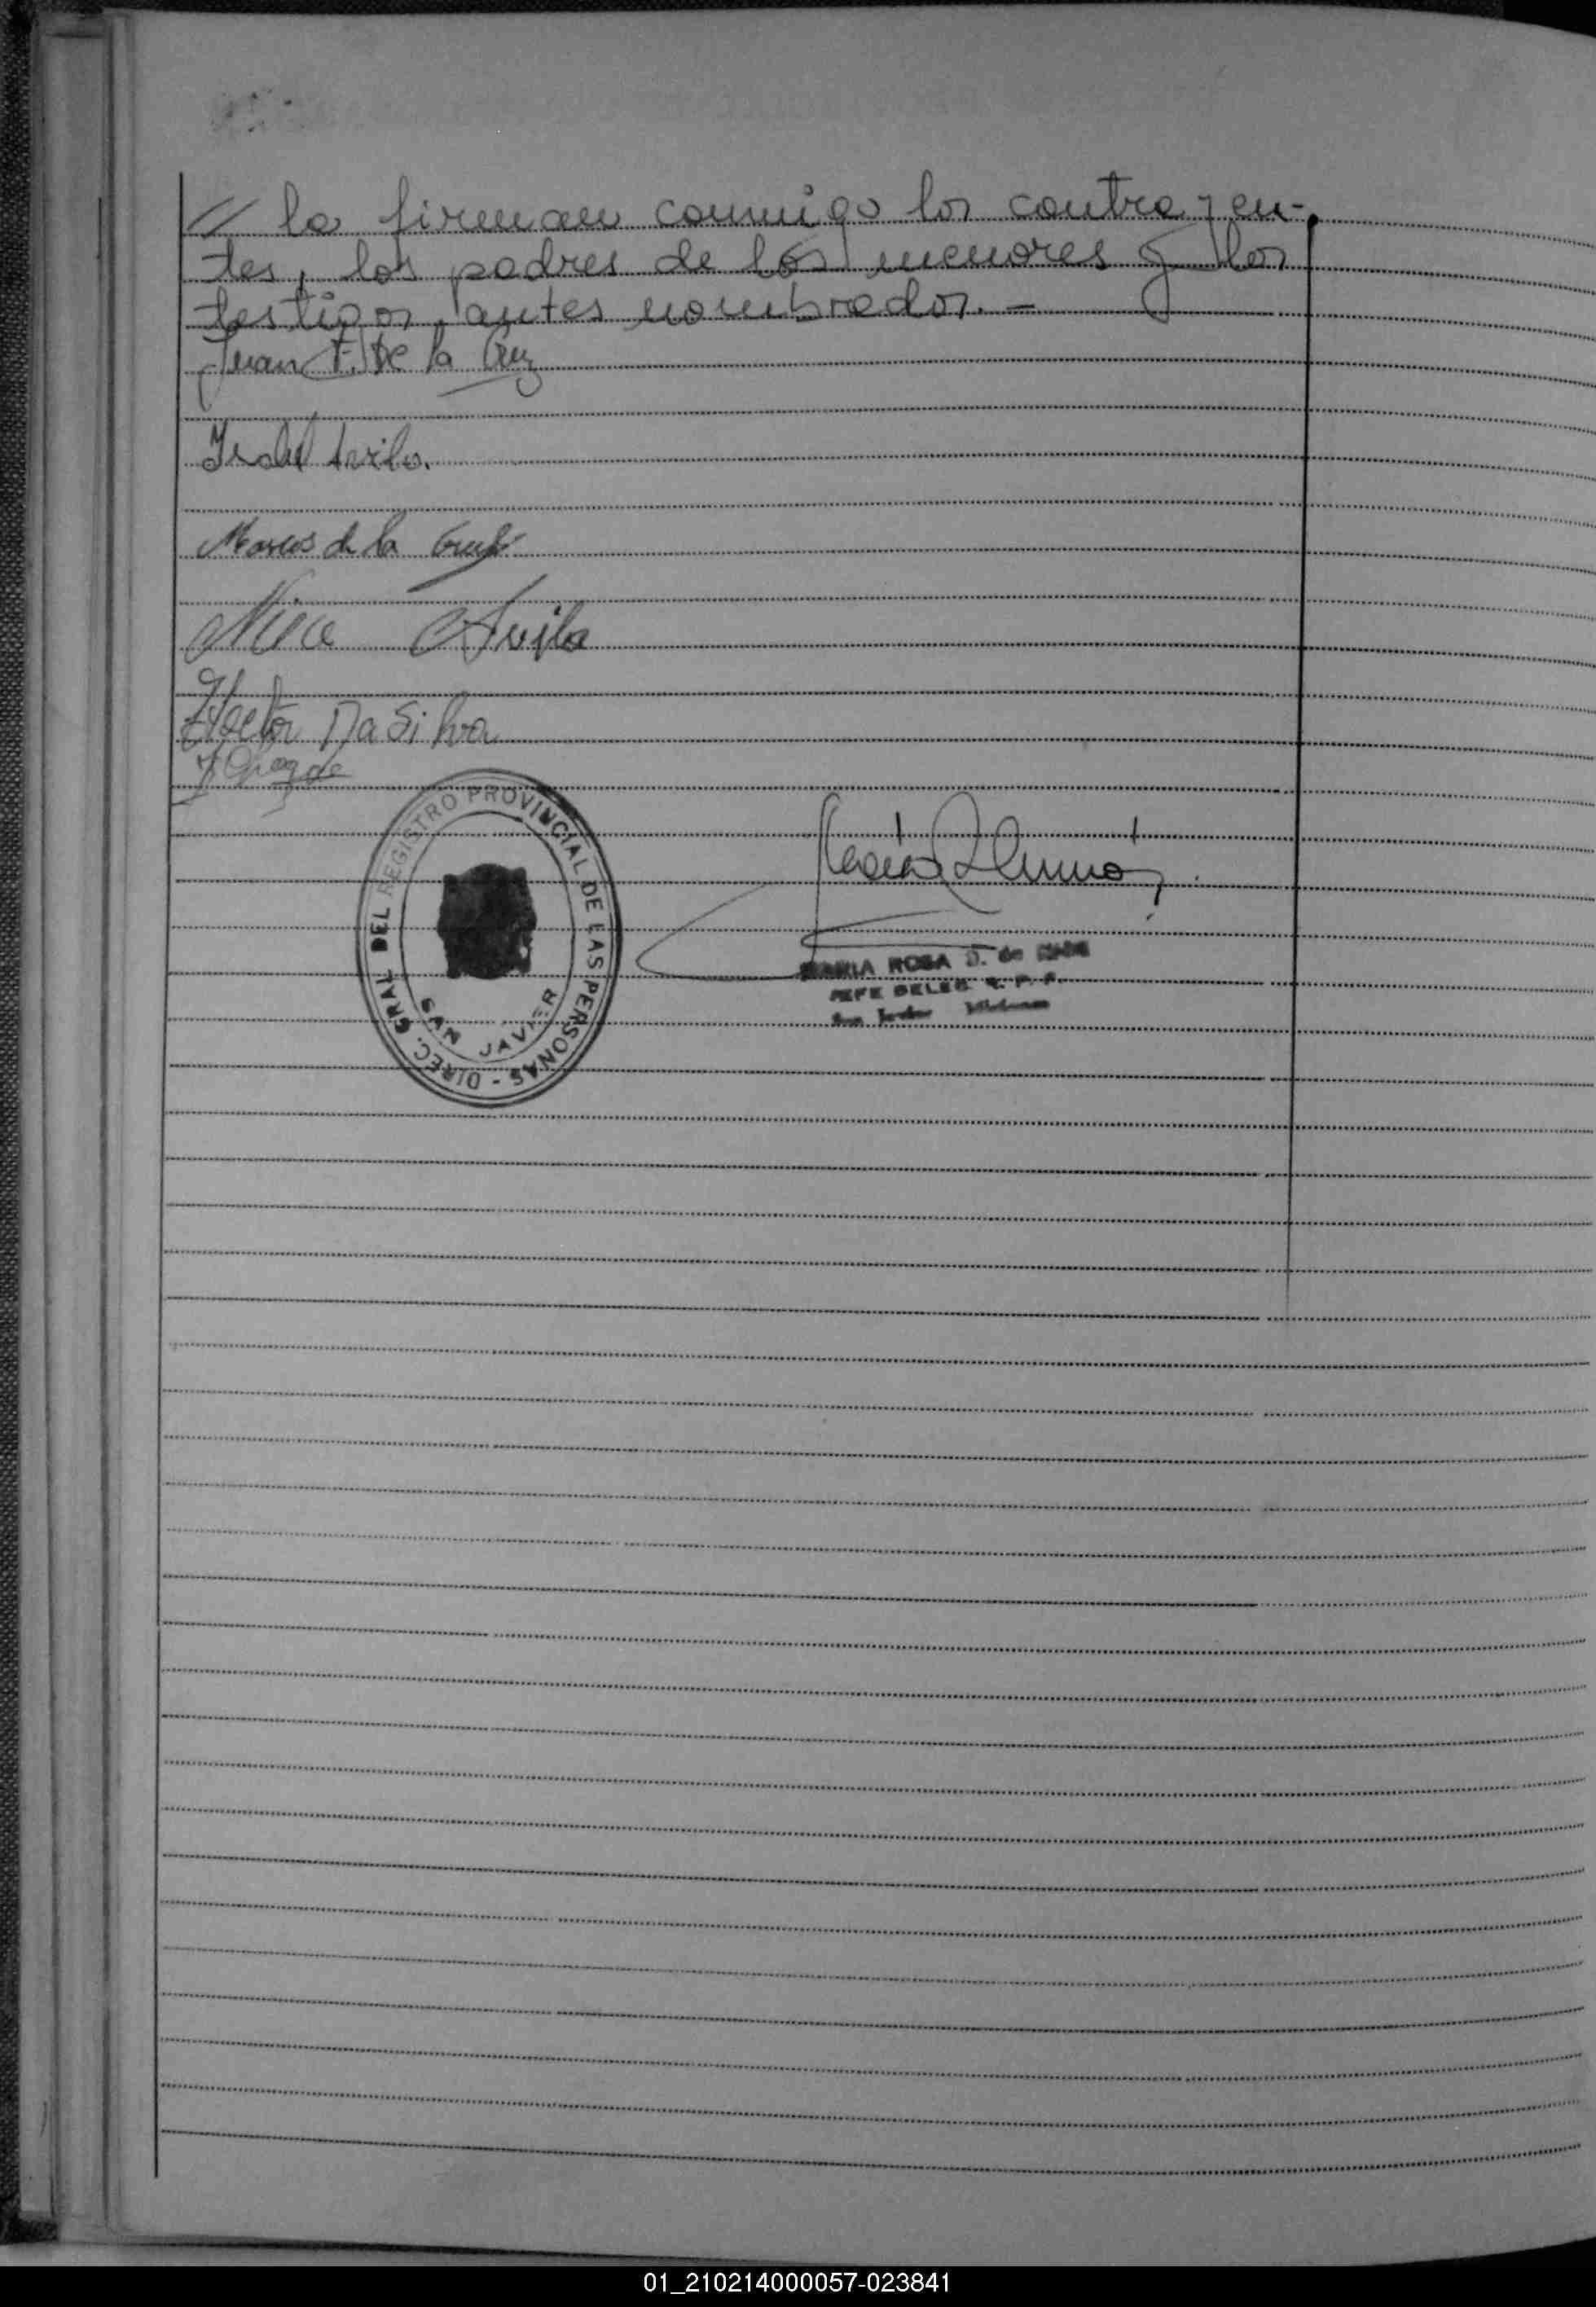 // la firman conmigo los contrayen-
tes, los padres de los menores y los
testigos antes nombrados. -
Juan F. De la Cruz
Isabel Avila.
Marcos de la Cruz
Nica Avila
Hector Da Silva
DIREC. GRAL DEL REGISTRO PROVINCIAL DE LAS PERSONAS -
SAN JAVIER
MARIA ROSA D. de
JEFE DELEG. R. P. P.
San Javier Misiones
01_210214000057-023841